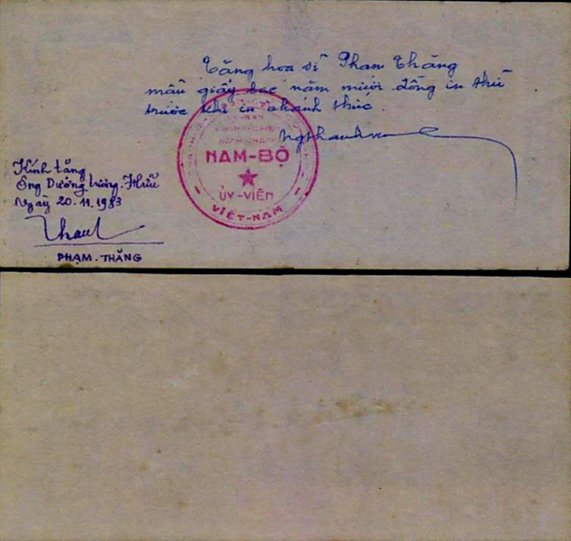 Tặng họa sĩ Phạm Thăng
mẫu giấy bạc năm mươi đồng in thử
trước khi in chánh thức.
NAM-BỘ
ỦY-VIÊN
VIỆT-NAM
Kính tặng
Ông Dương trung-Hữu
Ngày 20.11.1983
PHẠM.THĂNG